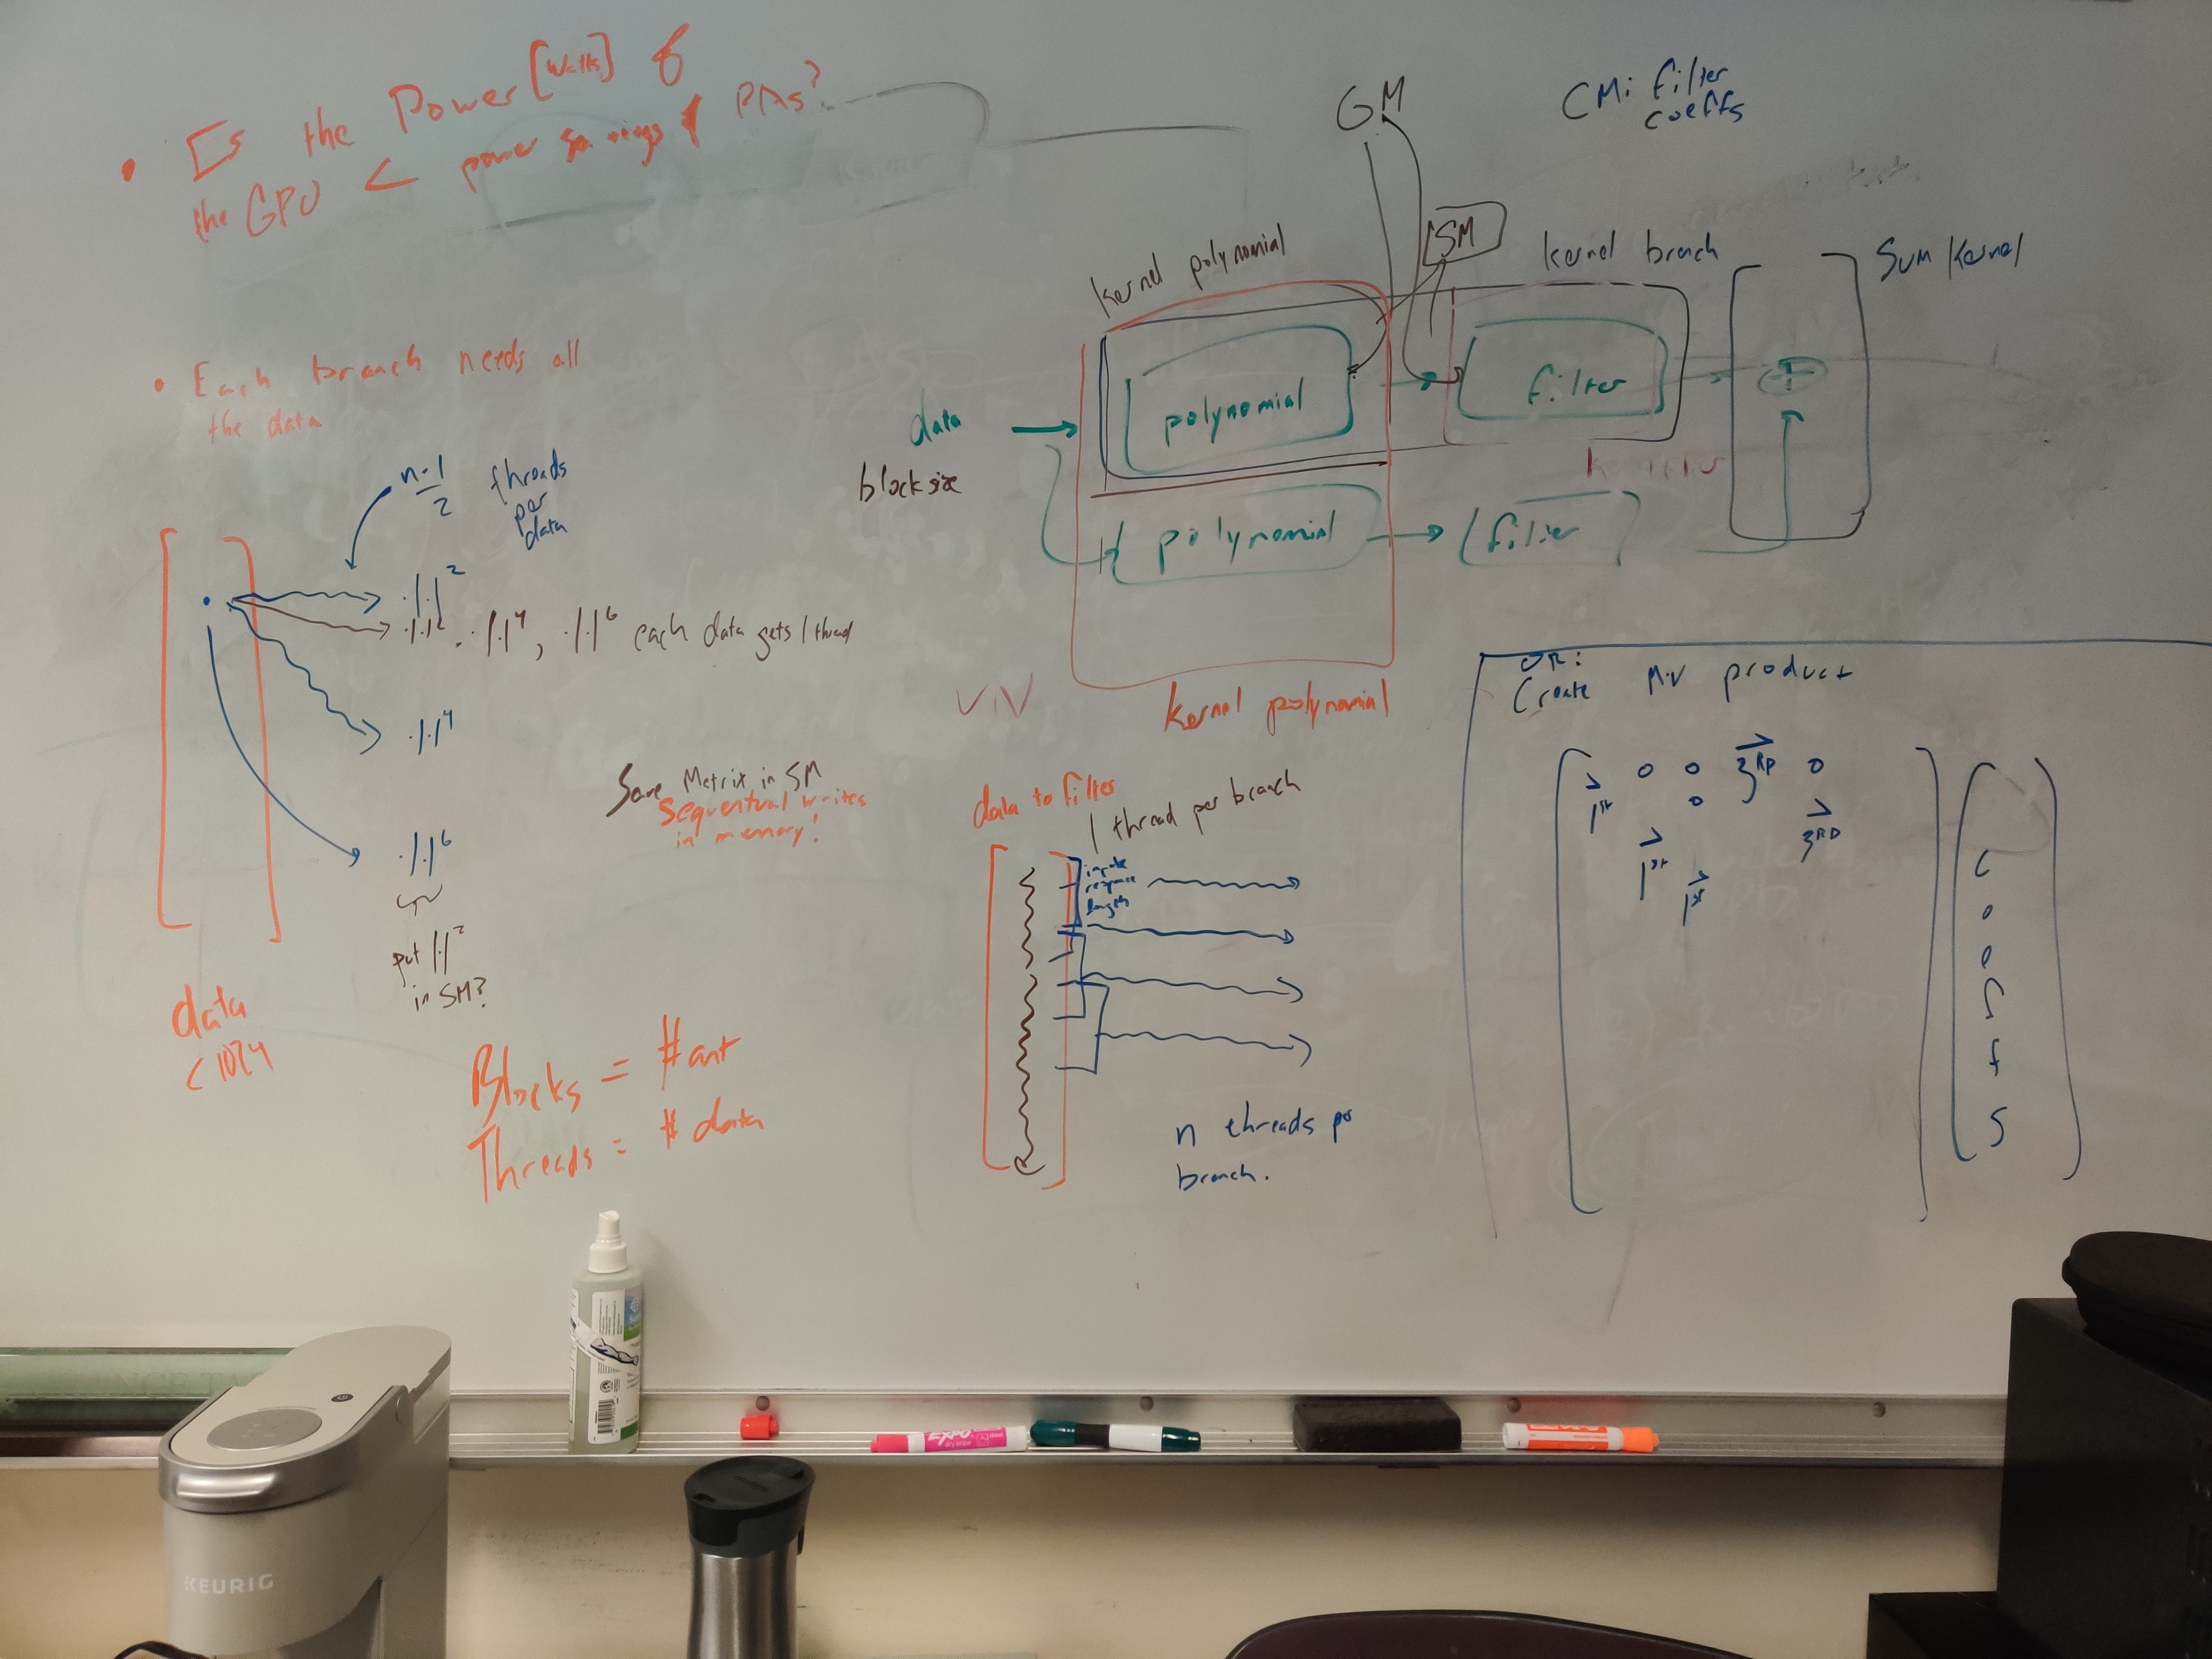 • Is the Power [Watts] of
the GPU < power savings of PAs?
• Each branch needs all
the data
n-1
2
threads
per
data
·|·|²
·|·|², ·|·|⁴, ·|·|⁶ each data gets 1 thread
·|·|⁴
·|·|⁶
put |·|²
in SM?
data
< 1024
Save Metrix in SM
sequential writes
in memory!
Blocks = #ant
Threads = # data
GM
CM: filter
coeffs
SM
kernel polynomial
kernel branch
Sum Kernel
data
blocksize
polynomial
filter
+
polynomial
filter
kernel polynomial
data to filter
1 thread per branch
impulse
response
length
n threads per
branch.
OR:
Create M·V product
1st 0 0 3RD 0
0 3RD
1st
1st
C
o
e
f
f
s
KEURIG
EXPO
dry erase